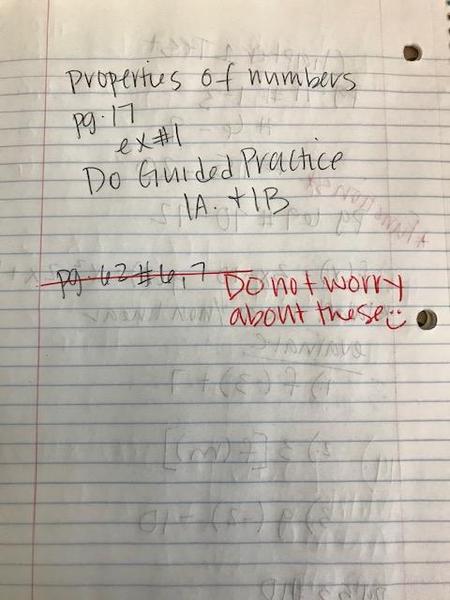 Properties of numbers
pg. 17
ex #1
Do Guided Practice
1A. + 1B
pg. 62 #6,7 Do not worry
about these